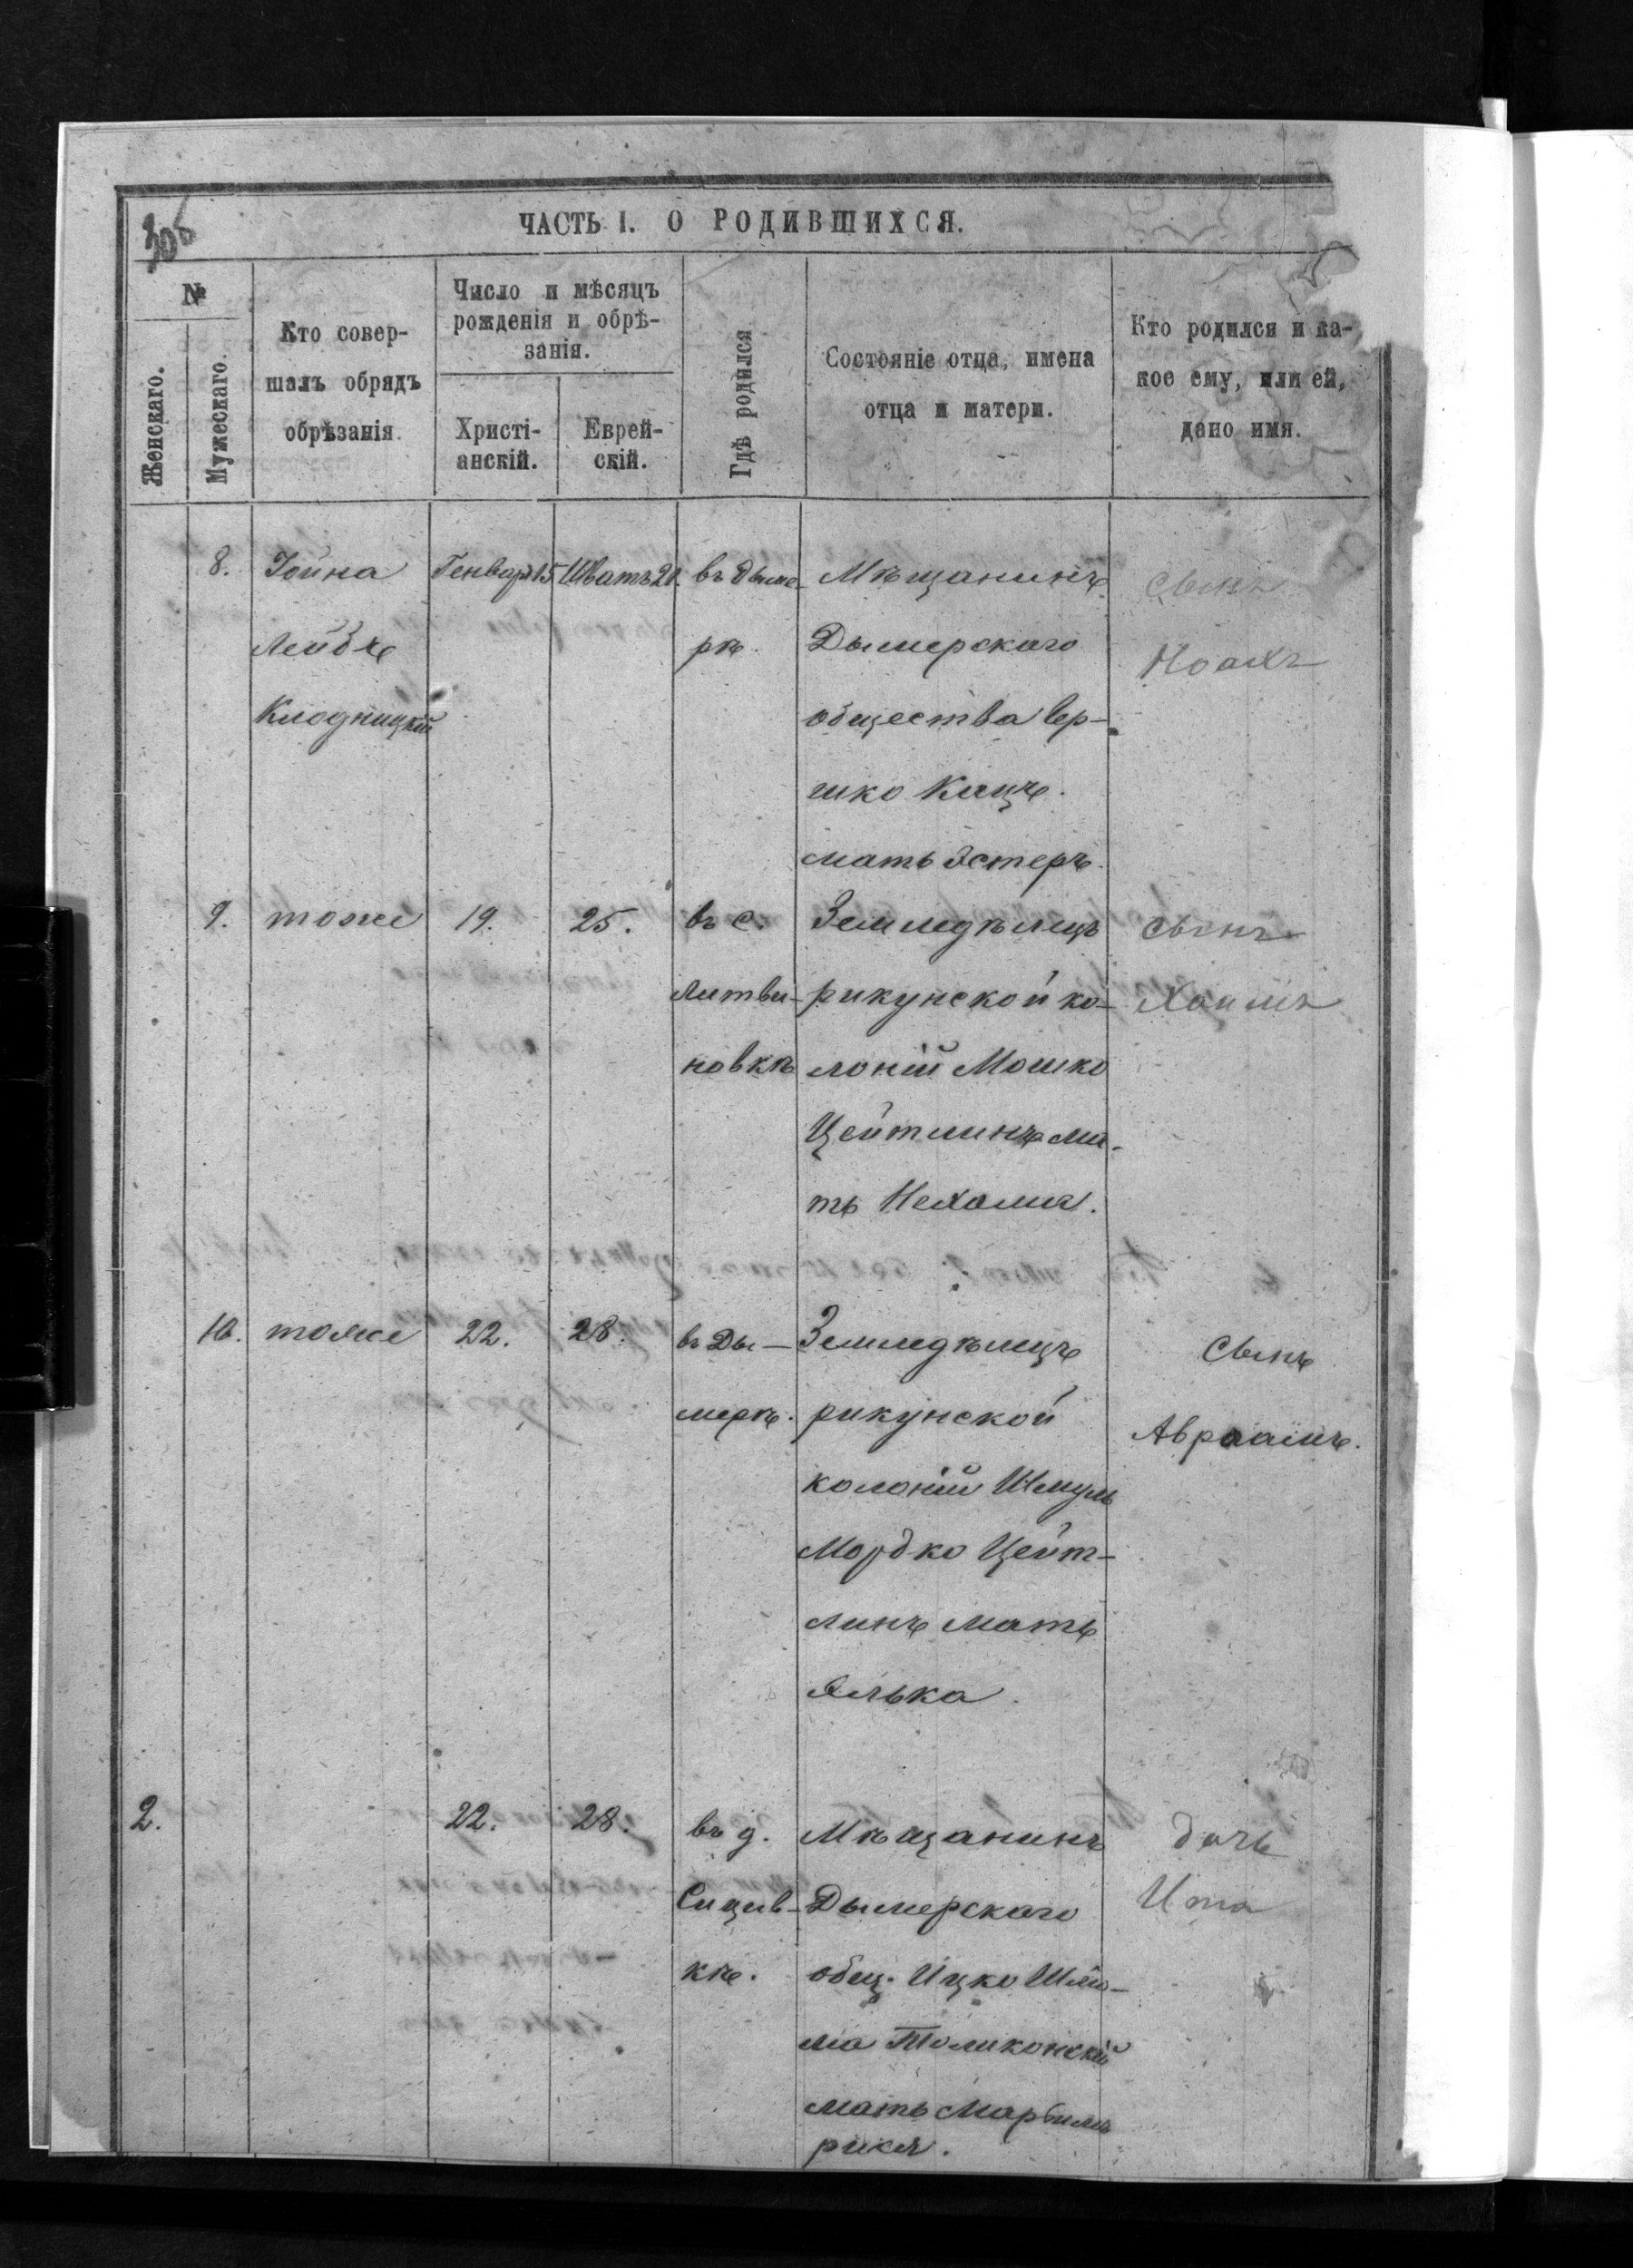 306
ЧАСТЬ I. О РОДИВШИХСЯ.
№
Женскаго.
Мужескаго.
Кто совер-
шалъ обрядъ
обрѣзанія.
Число и мѣсяцъ
рожденія и обрѣ-
занія.
Христі-
анскій.
Еврей-
скій.
Гдѣ родился
Состояніе отца, имена
отца и матери.
Кто родился и ка-
кое ему, или ей,
дано имя.
8.
Іойна
Лейбъ
Клодницкій
Генваря 15
Шватъ 21.
въ Дыме-
рѣ.
Мѣщанинъ
Дымерскаго
общества Гер-
шко Кацъ.
мать Эстеръ.
сынъ
Ноахъ
9.
тоже
19.
25.
въ с.
Литви-
новкѣ
Земледѣлецъ
рикунской ко-
лоній Мошко
Цейтлинъ ма-
ть Нехама.
сынъ
Хаимъ
10.
тоже
22.
28.
въ Ды-
мерѣ.
Земледѣлецъ
рикунской
колоній Шмуль
Мордко Цейт-
линъ мать
Элька.
Сынъ
Авраамъ.
2.
22.
28.
въ д.
кѣ.
Мѣщанинъ
Дымерскаго
общ. Ицко Шлю-
ма
мать
дочь
Ита